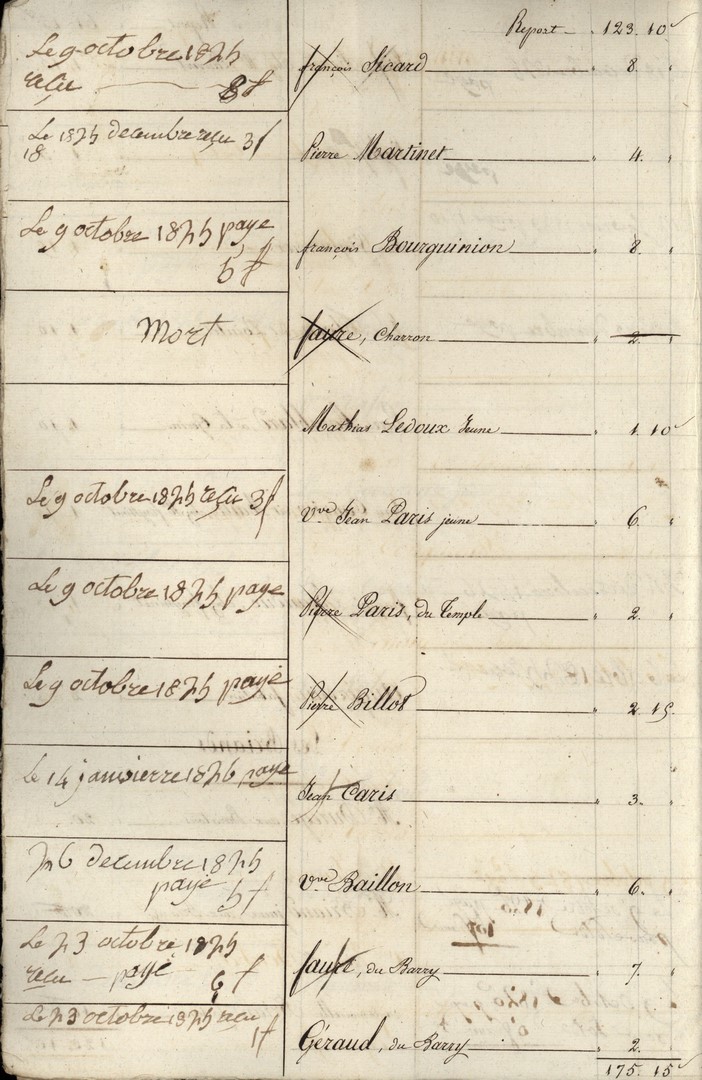 Report 123. 10
Le 9 octobre 1825
reçu 8f
françois Sicard 8.
Le 1825 decembre reçu 3f
18
Pierre Martinet 4.
Le 9 octobre 1825 paye
5f
françois Bourguinion 8.
Mort
faure, Charron 2.
Mathias Ledoux Jeune 1. 10
Le 9 octobre 1825 reçu 3f
Vve Jean Paris jeune 6.
Le 9 octobre 1825 paye
Pierre Paris, du Temple 2.
Le 9 octobre 1825 payé
Pierre Billot 2. 15.
Le 14 janvierre 1826 paye
Jean Caris 3.
26 decembre 1825
payé 5f
Vve Baillon 6.
Le 23 octobre 1825
reçu — payé 6f
faure, du Barry 7.
Le 23 octobre 1825 reçu
1f
Géraud, du Barry 2.
175. 15